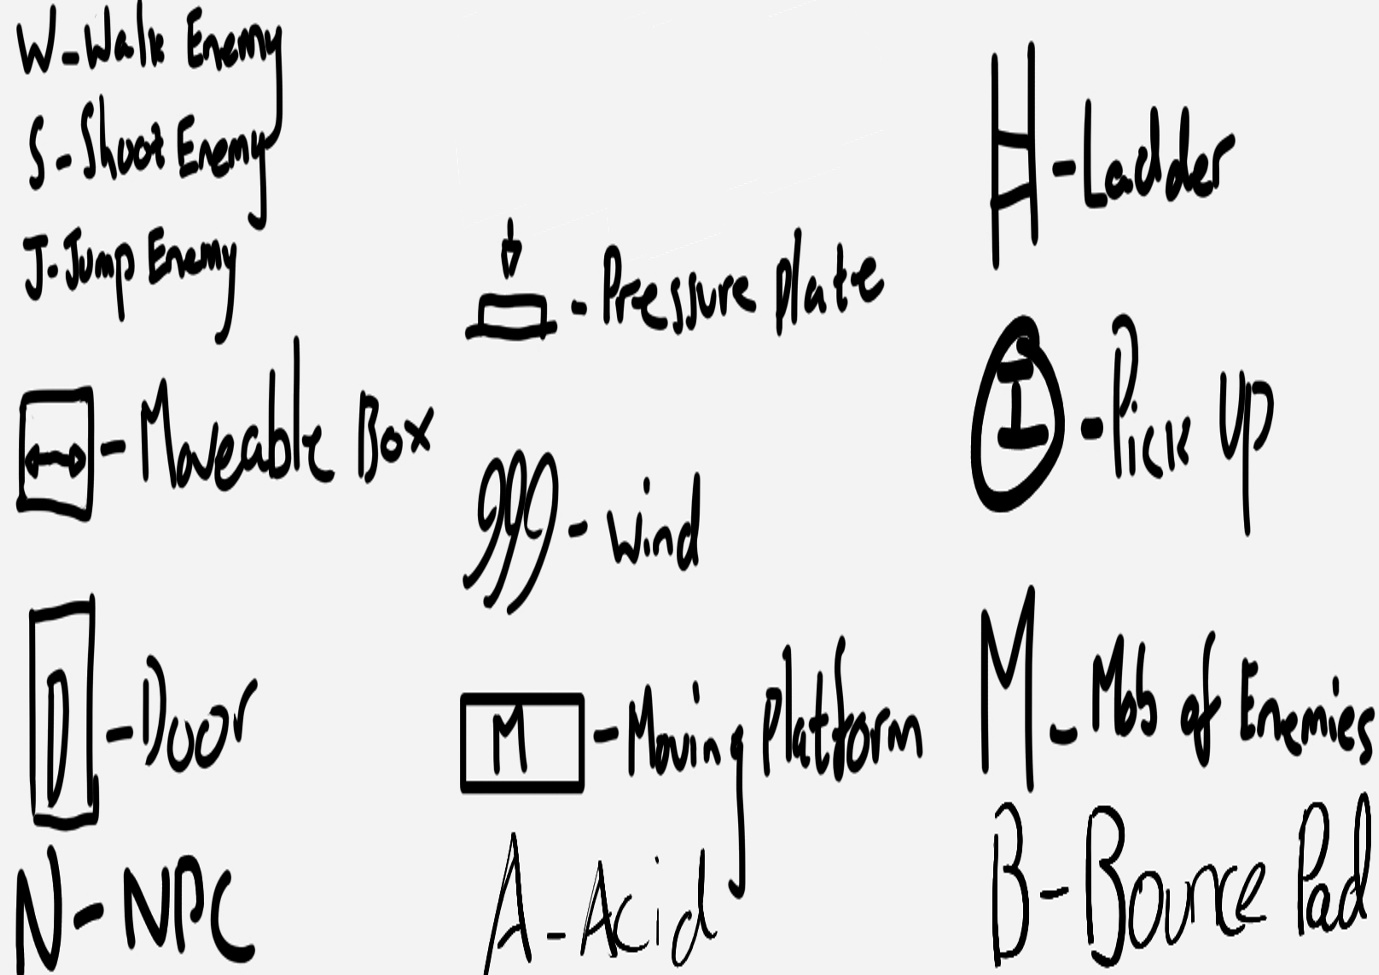 W-Walk Enemy
S-Shoot Enemy
J-Jump Enemy
-Moveable Box
D-Door
N-NPC
-Pressure plate
-wind
M-Moving Platform
A-Acid
H-Ladder
I-Pick up
M-Mob of Enemies
B-Bounce Pad